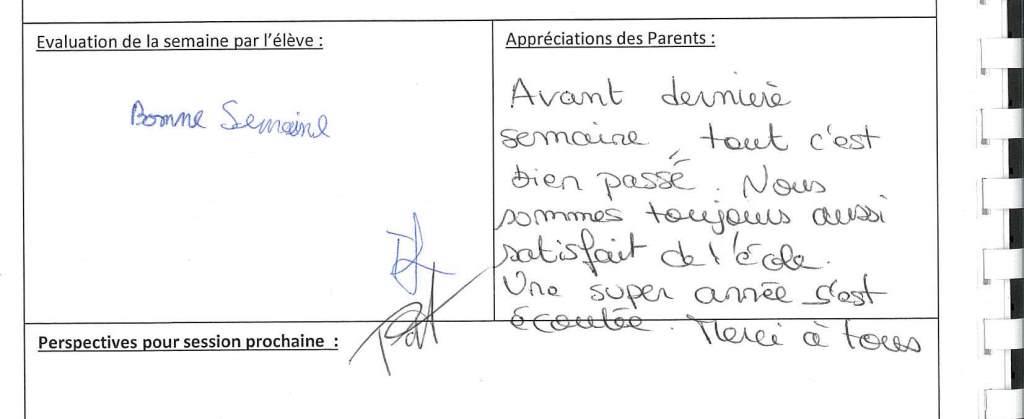 Evaluation de la semaine par l'élève :
Bonne Semaine
Appréciations des Parents :
Avant dernière
semaine, tout c'est
bien passé. Nous
sommes toujours aussi
satisfait de l'école.
Une super année s'est
écoutée. Merci à tous
Perspectives pour session prochaine :